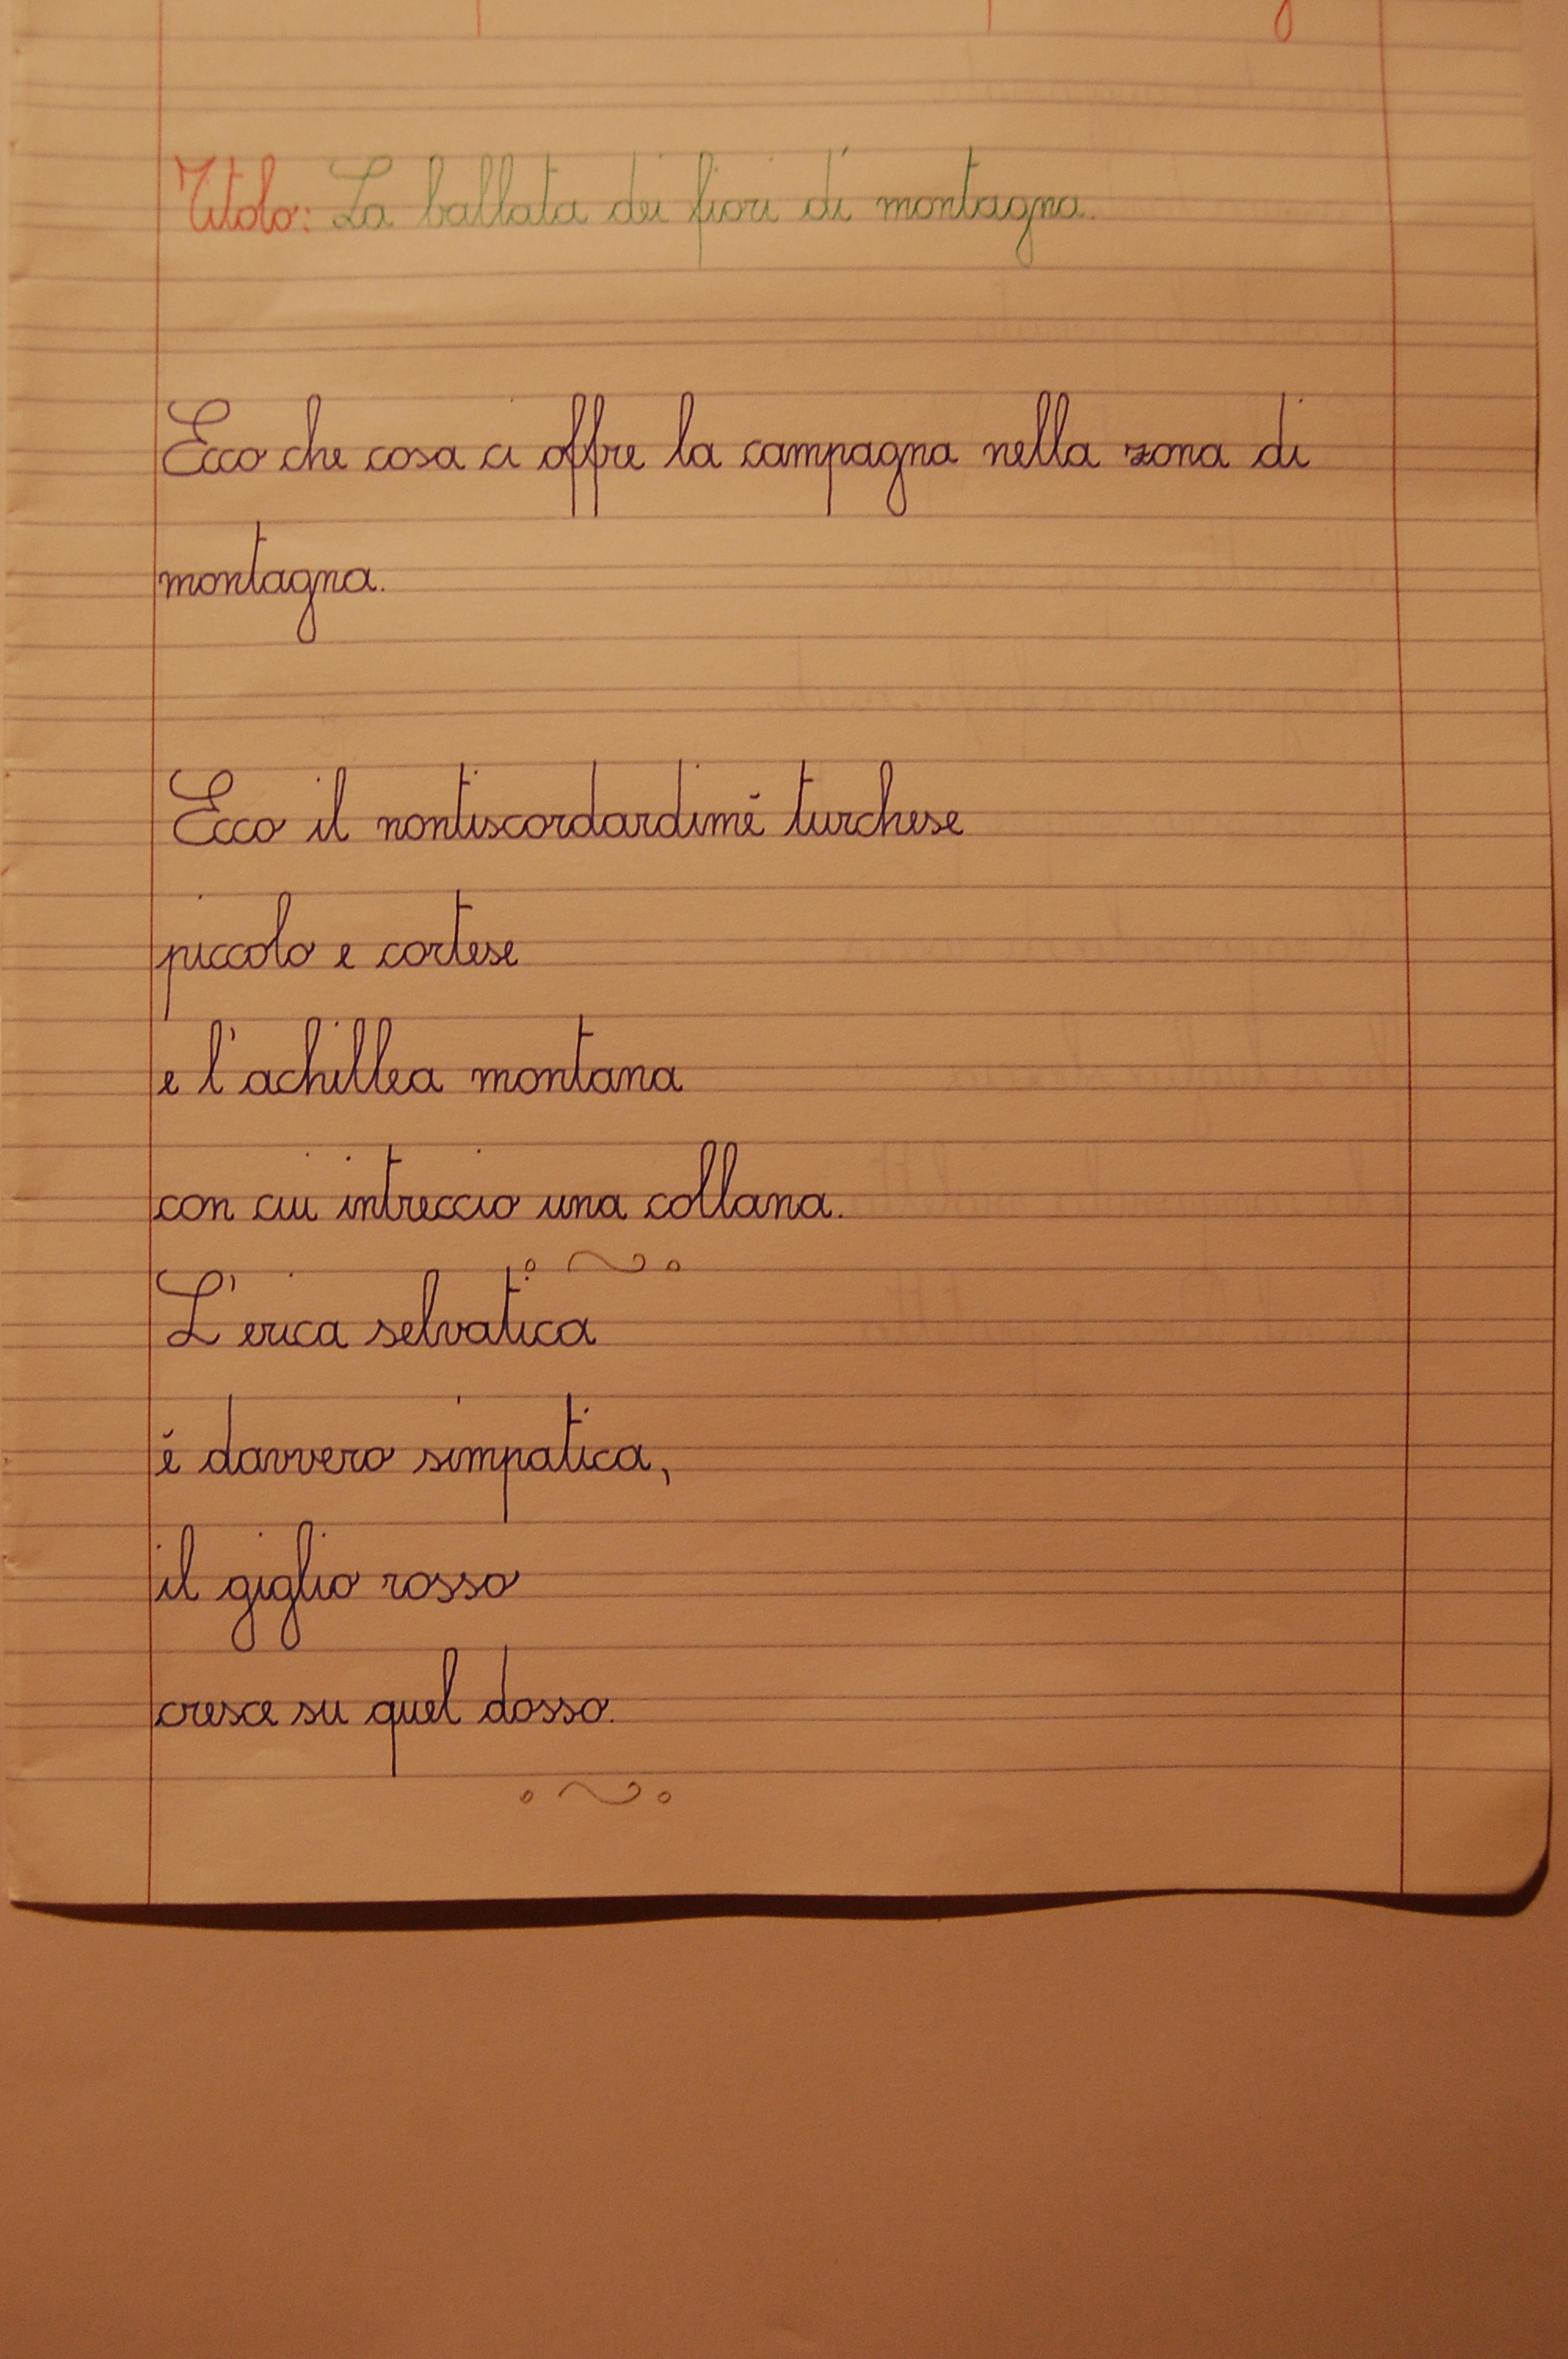 Titolo: La ballata dei fiori di montagna.
Ecco che cosa ci offre la campagna nella zona di
montagna.
Ecco il nontiscordardimé turchese
piccolo e cortese
e l'achillea montana
con cui intreccio una collana.
L'erica selvatica
é davvero simpatica,
il giglio rosso
cresce su quel dosso.